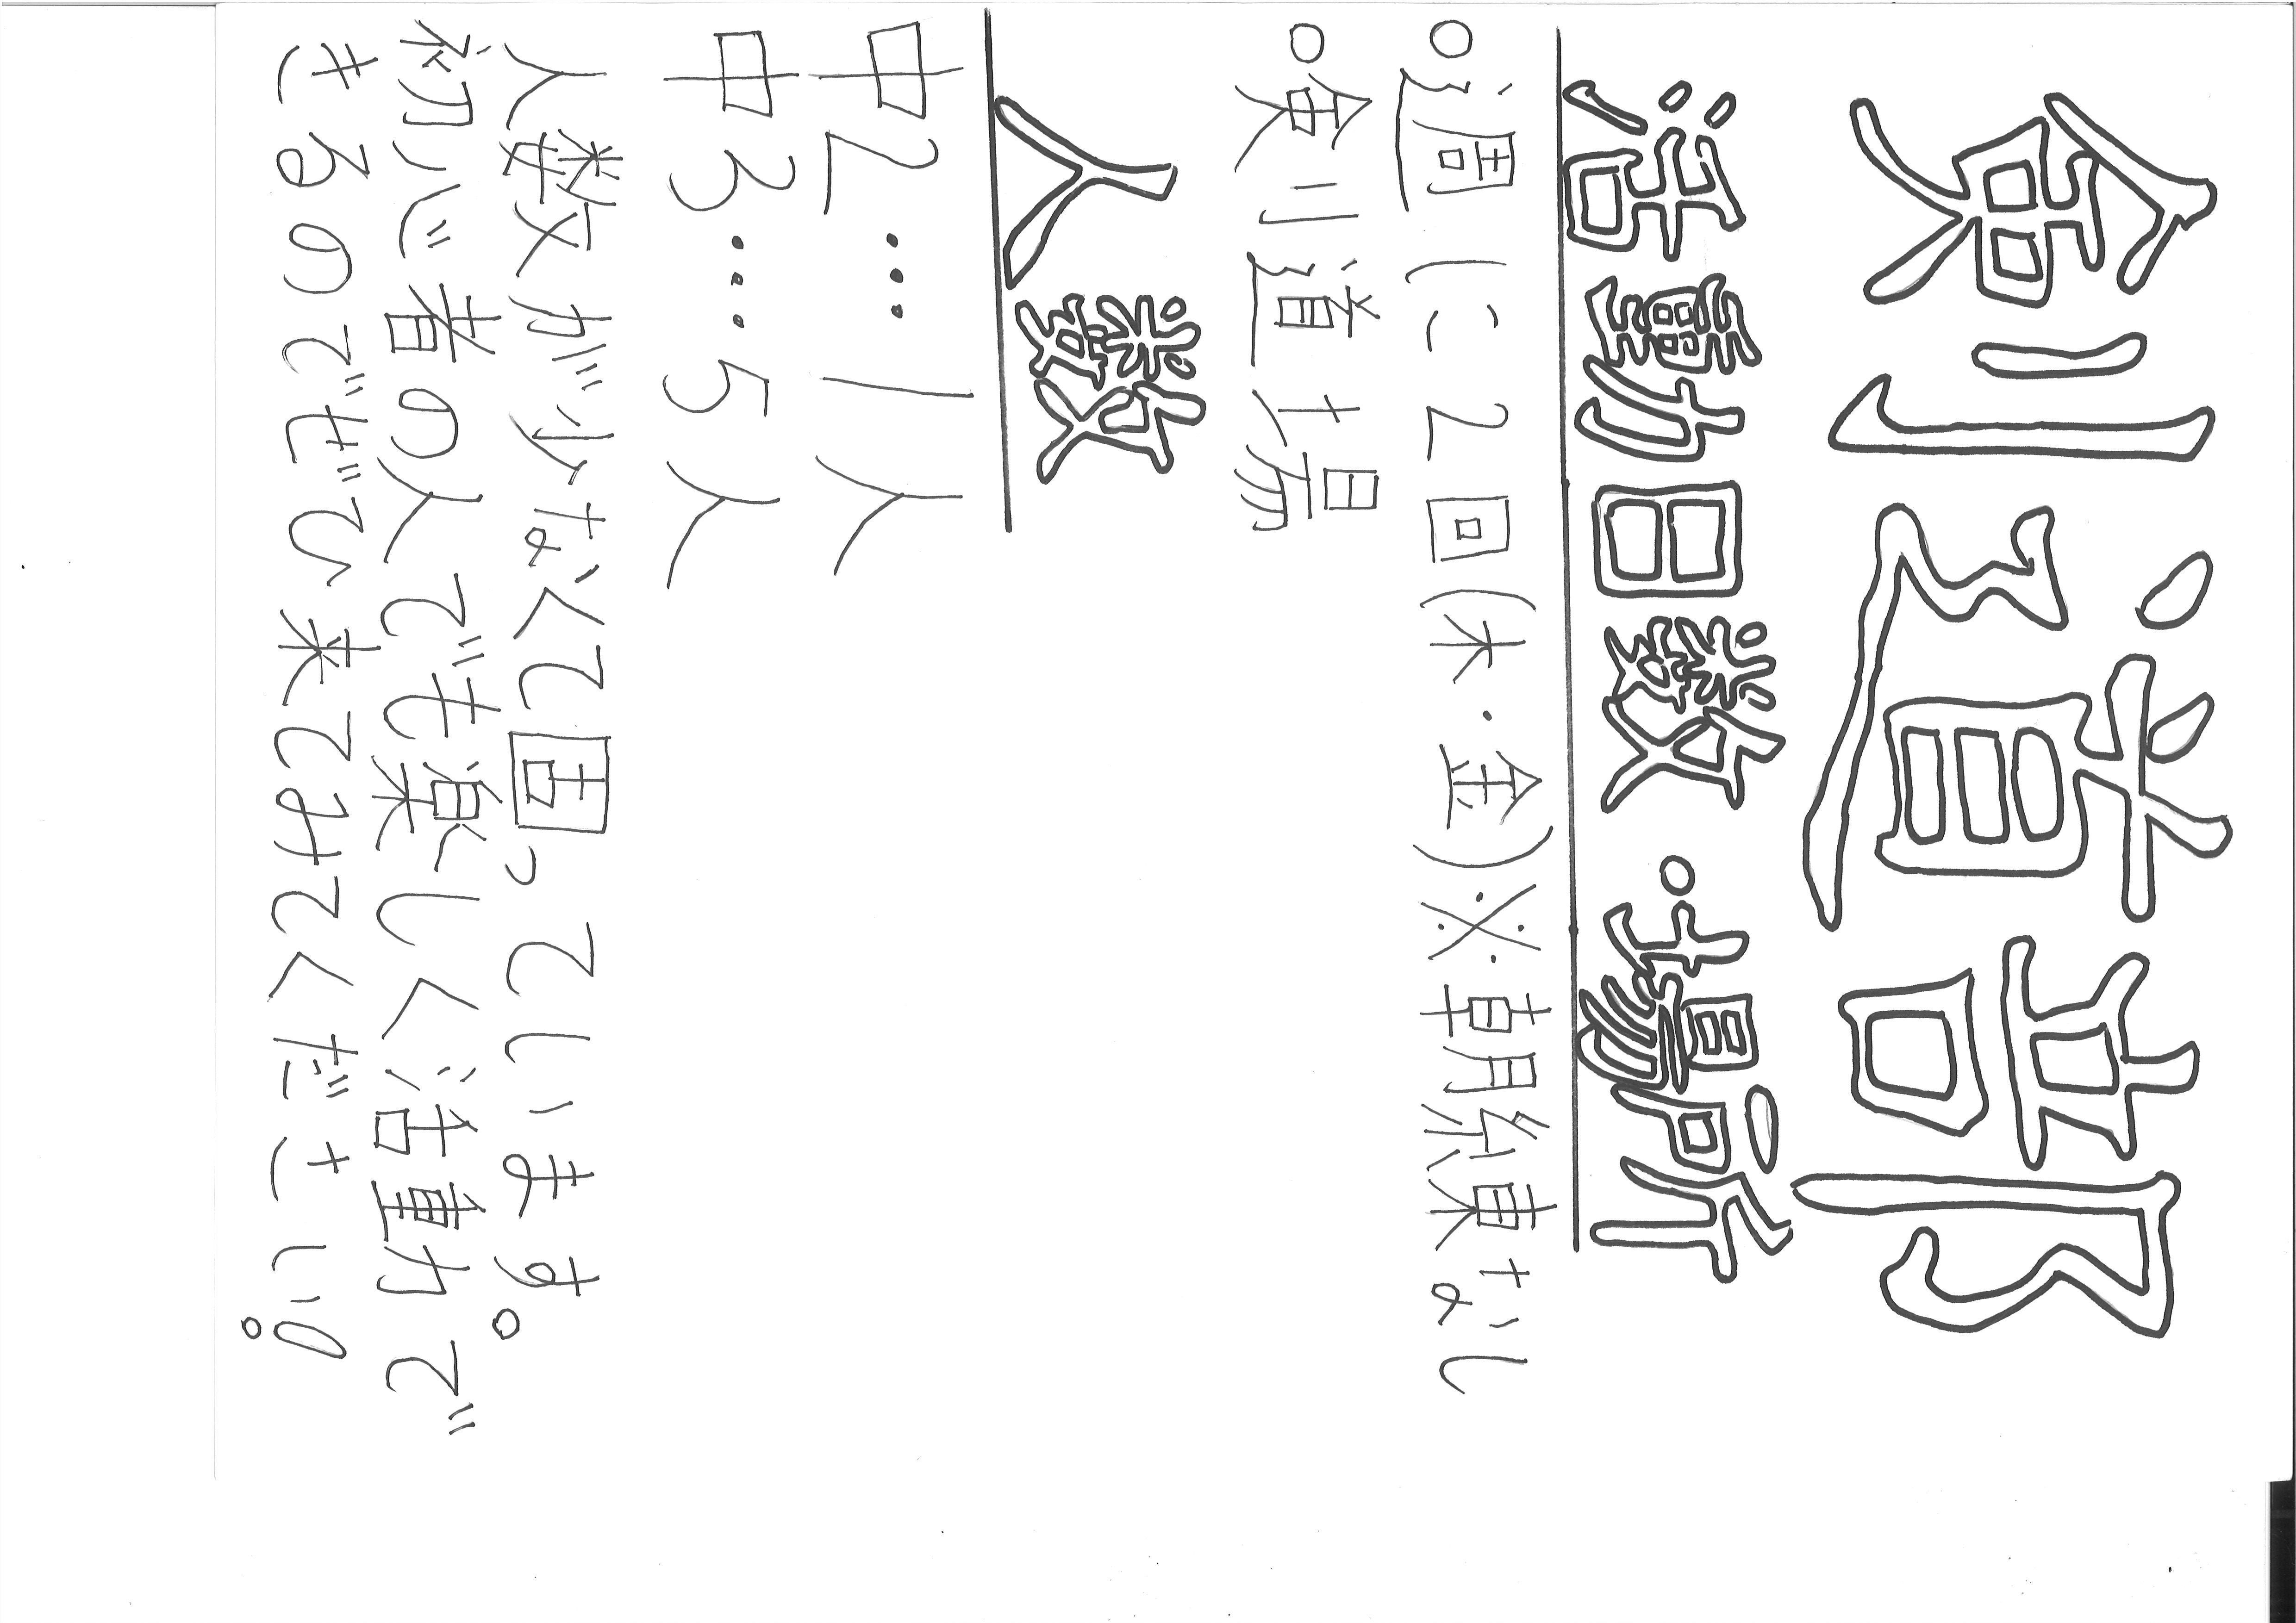 剣道部
活動日数・場所
○週に2回(木・金)※朝練なし
○剣道場
人数
中2…1人
中3…5人
人数が少なくて困っています。
初心者の人でも楽しく活動で
きるのでぜひ来てみてください!